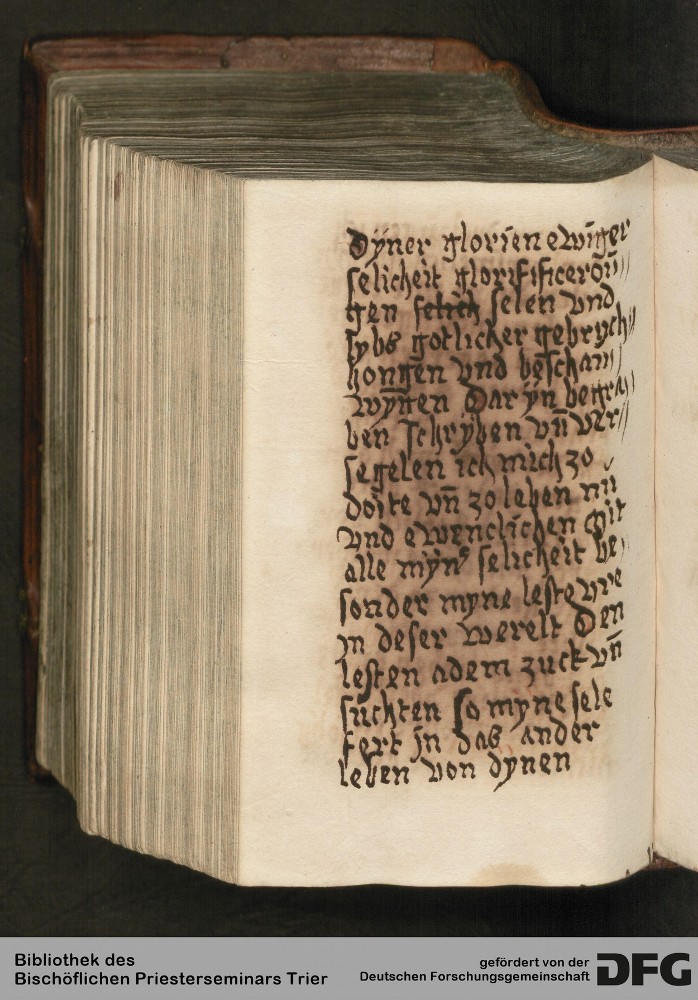 dyner glorien ewiger
selicheit glorifificerou̅
gen selich selen vnd
lybs gotlicher gebruch
hongen vnd beschau
wyngen Daryn begra
ben schryben vn̅ ver
segelen ich mich zo
doite vn̅ zo leben nu̅
vnd ewenclichen Mit
alle myn selicheit be
sonder myne leste vre
jn deser werelt Den
lesten adem zuck vn̅
suchten So myne sele
fert jn das ander
leben von dynen
Bibliothek des
Bischöflichen Priesterseminars Trier
gefördert von der
Deutschen Forschungsgemeinschaft
DFG